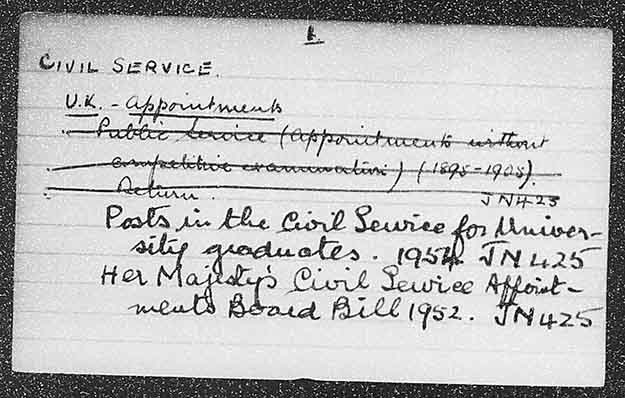 1.
CIVIL SERVICE.
U.K. - Appointments
Public Service (Appointments without
competitive examination) (1895-1905).
Return. JN425
Posts in the Civil Service for Univer-
sity graduates. 1954. JN425
Her Majesty's Civil Service Appoint-
ments Board Bill 1952. JN425